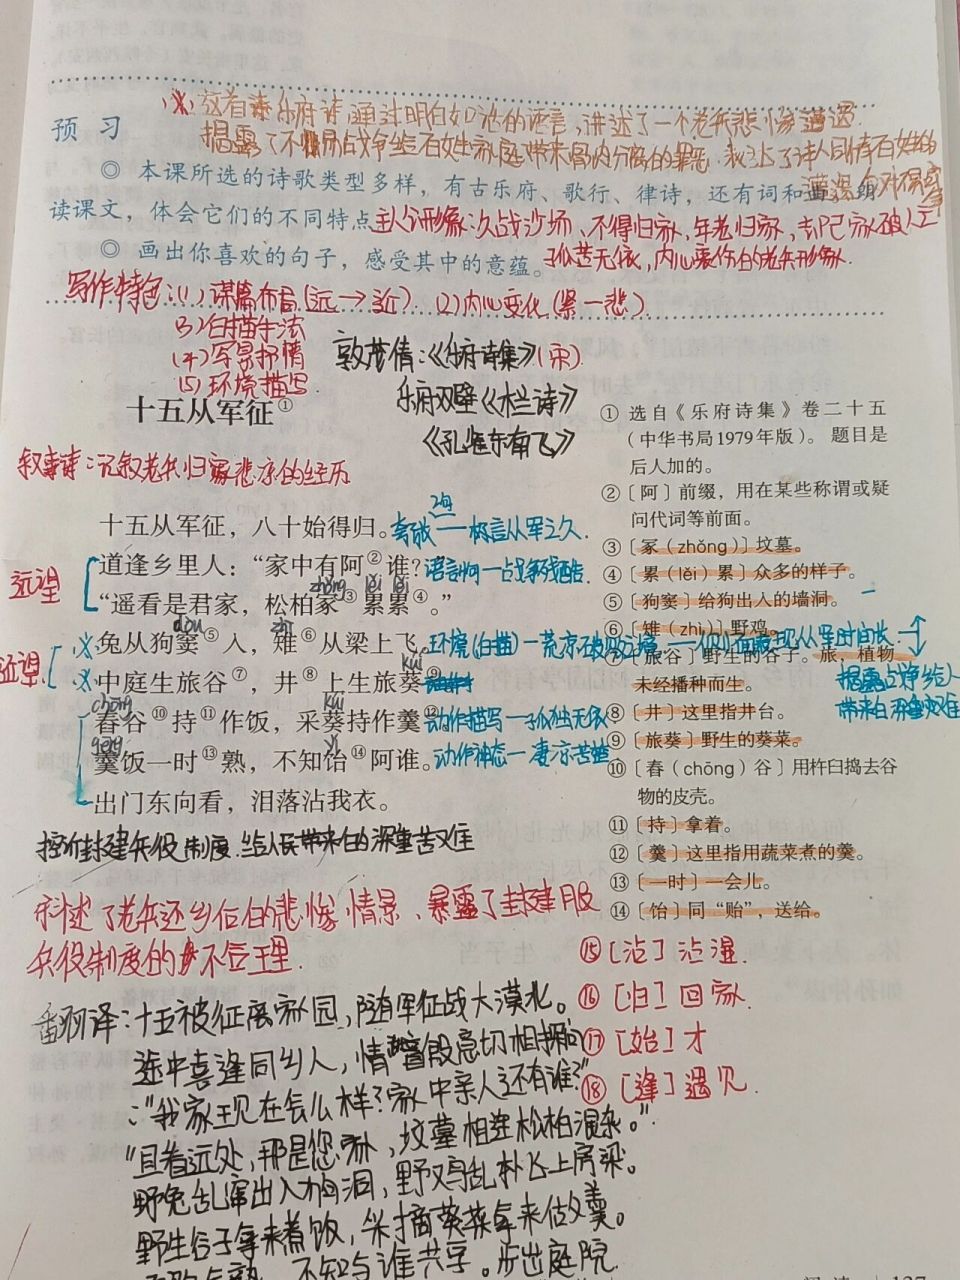 ※ 这首乐府诗,通过明白如话的语言,讲述了一个老兵悲惨遭遇.
预 习
揭露了不战争给百姓家庭带来骨肉分离的罪恶,表达了诗人同情百姓的
◎ 本课所选的诗歌类型多样，有古乐府、歌行、律诗，还有词和曲。朗
读课文，体会它们的不同特点
主人公形象:久战沙场、不得归家,年老归家,却已家破人亡
◎ 画出你喜欢的句子，感受其中的意蕴。
孤苦无依,内心哀伤的老兵形象.
写作特色:(1)谋篇布局(远→近).(2)内心变化(累一悲)
(3)白描手法
(4)写景抒情
(5)环境描写
敦茂倩:《乐府诗集》(宋)
乐府双壁《木兰诗》
《孔雀东南飞》
十五从军征①
叙事诗:记叙老兵归家悲凉的经历
十五从军征，八十始得归。
一极言从军之久.
远望
道逢乡里人：“家中有阿②谁？
语言问一战争残酷.
zhǒng lěi lěi
“遥看是君家，松柏冢③累累④。”
dòu zhì
※ 兔从狗窦⑤入，雉⑥从梁上飞，
近望
kuí
※ 中庭生旅谷⑦，井⑧上生旅葵⑨
chōng kuí
舂谷⑩持⑪作饭，采葵持作羹⑫
动作描写一孤独无依
gēng yí
羹饭一时⑬熟，不知饴⑭阿谁。
动作神态一凄凉苦楚
出门东向看，泪落沾我衣。
控诉封建兵役制度.给人民带来的深重苦难
描述了老兵还乡后的悲惨情景、暴露了封建
兵役制度的不合理.
① 选自《乐府诗集》卷二十五
（中华书局1979年版）。题目是
后人加的。
②〔阿〕前缀，用在某些称谓或疑
问代词等前面。
③〔冢（zhǒng）〕坟墓。
④〔累（lěi）累〕众多的样子。
⑤〔狗窦〕给狗出入的墙洞。
⑥〔雉（zhì）〕野鸡。
⑦〔旅谷〕野生的谷子。旅，植物
未经播种而生。
揭露战争给人
带来的深重灾难
⑧〔井〕这里指井台。
⑨〔旅葵〕野生的葵菜。
⑩〔舂（chōng）谷〕用杵臼捣去谷
物的皮壳。
⑪〔持〕拿着。
⑫〔羹〕这里指用蔬菜煮的羹。
⑬〔一时〕一会儿。
⑭〔饴〕同“贻”，送给。
⑮[沾]沾湿.
⑯[归]回家.
⑰[始]才
⑱[逢]遇见.
翻译:十五被征离家园,随军征战大漠北。
途中喜逢同乡人,情意殷急切相拥问
:“我家现在怎么样?家中亲人还有谁?”
“且看远处,那是您家,坟墓相连松柏混杂。”
野兔乱窜出入狗洞,野鸡乱扑飞上房梁。
野生谷子拿来煮饭,采摘葵菜拿来做羹。
不知与谁共享。步出庭院